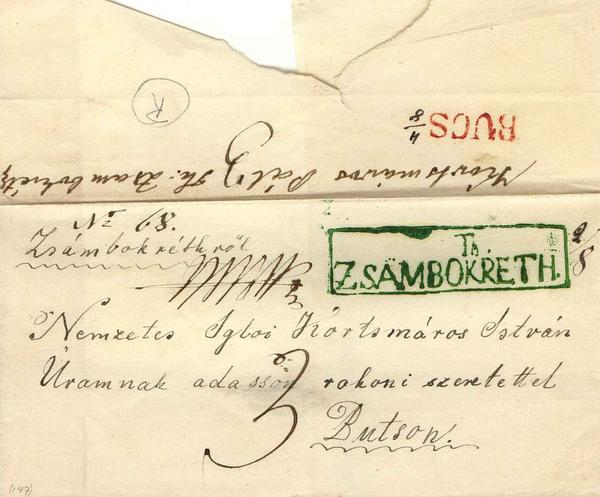 R
BUCS
4/8
Kortsmáros Pál Th. Zsambokréth
3
No 68.
Zsámbokréthről
Th.
ZSÁMBOKRETH.
2/8
Nemzetes Igloi Kortsmáros István
Úramnak adasson rokoni szeretettel
3
Butson.
(147)